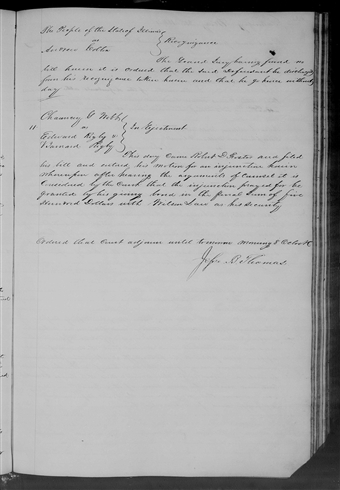 The People of the State of Illinois
vs } Recognizance
The Grand Jury having found no
bill herein it is ordered that the said Defendant be discharged
from his recognizance taken herein and that he go hence without
day
Chauncey G. Webb
11 vs } In Ejectment
Edward Rigby &
Rigby
This day came Robert D. Foster and filed
his bill and entered his motion for an injunction herein
Whereupon after hearing the arguments of Counsel it is
Considered by the Court that the injunction prayed for be
granted by his giving bond in the penal sum of five
Hundred Dollars with Wilson Law as his security
Ordered that Court adjourn until tomorrow morning 8 o'clock
Jesse B. Thomas